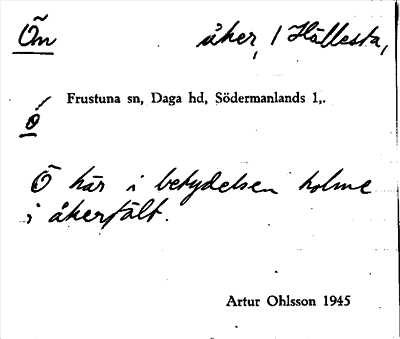 Ön åker, / Hällesta,
Frustuna sn, Daga hd, Södermanlands l,.
ó
Ö här i betydelsen holme
i åkerfält.
Artur Ohlsson 1945